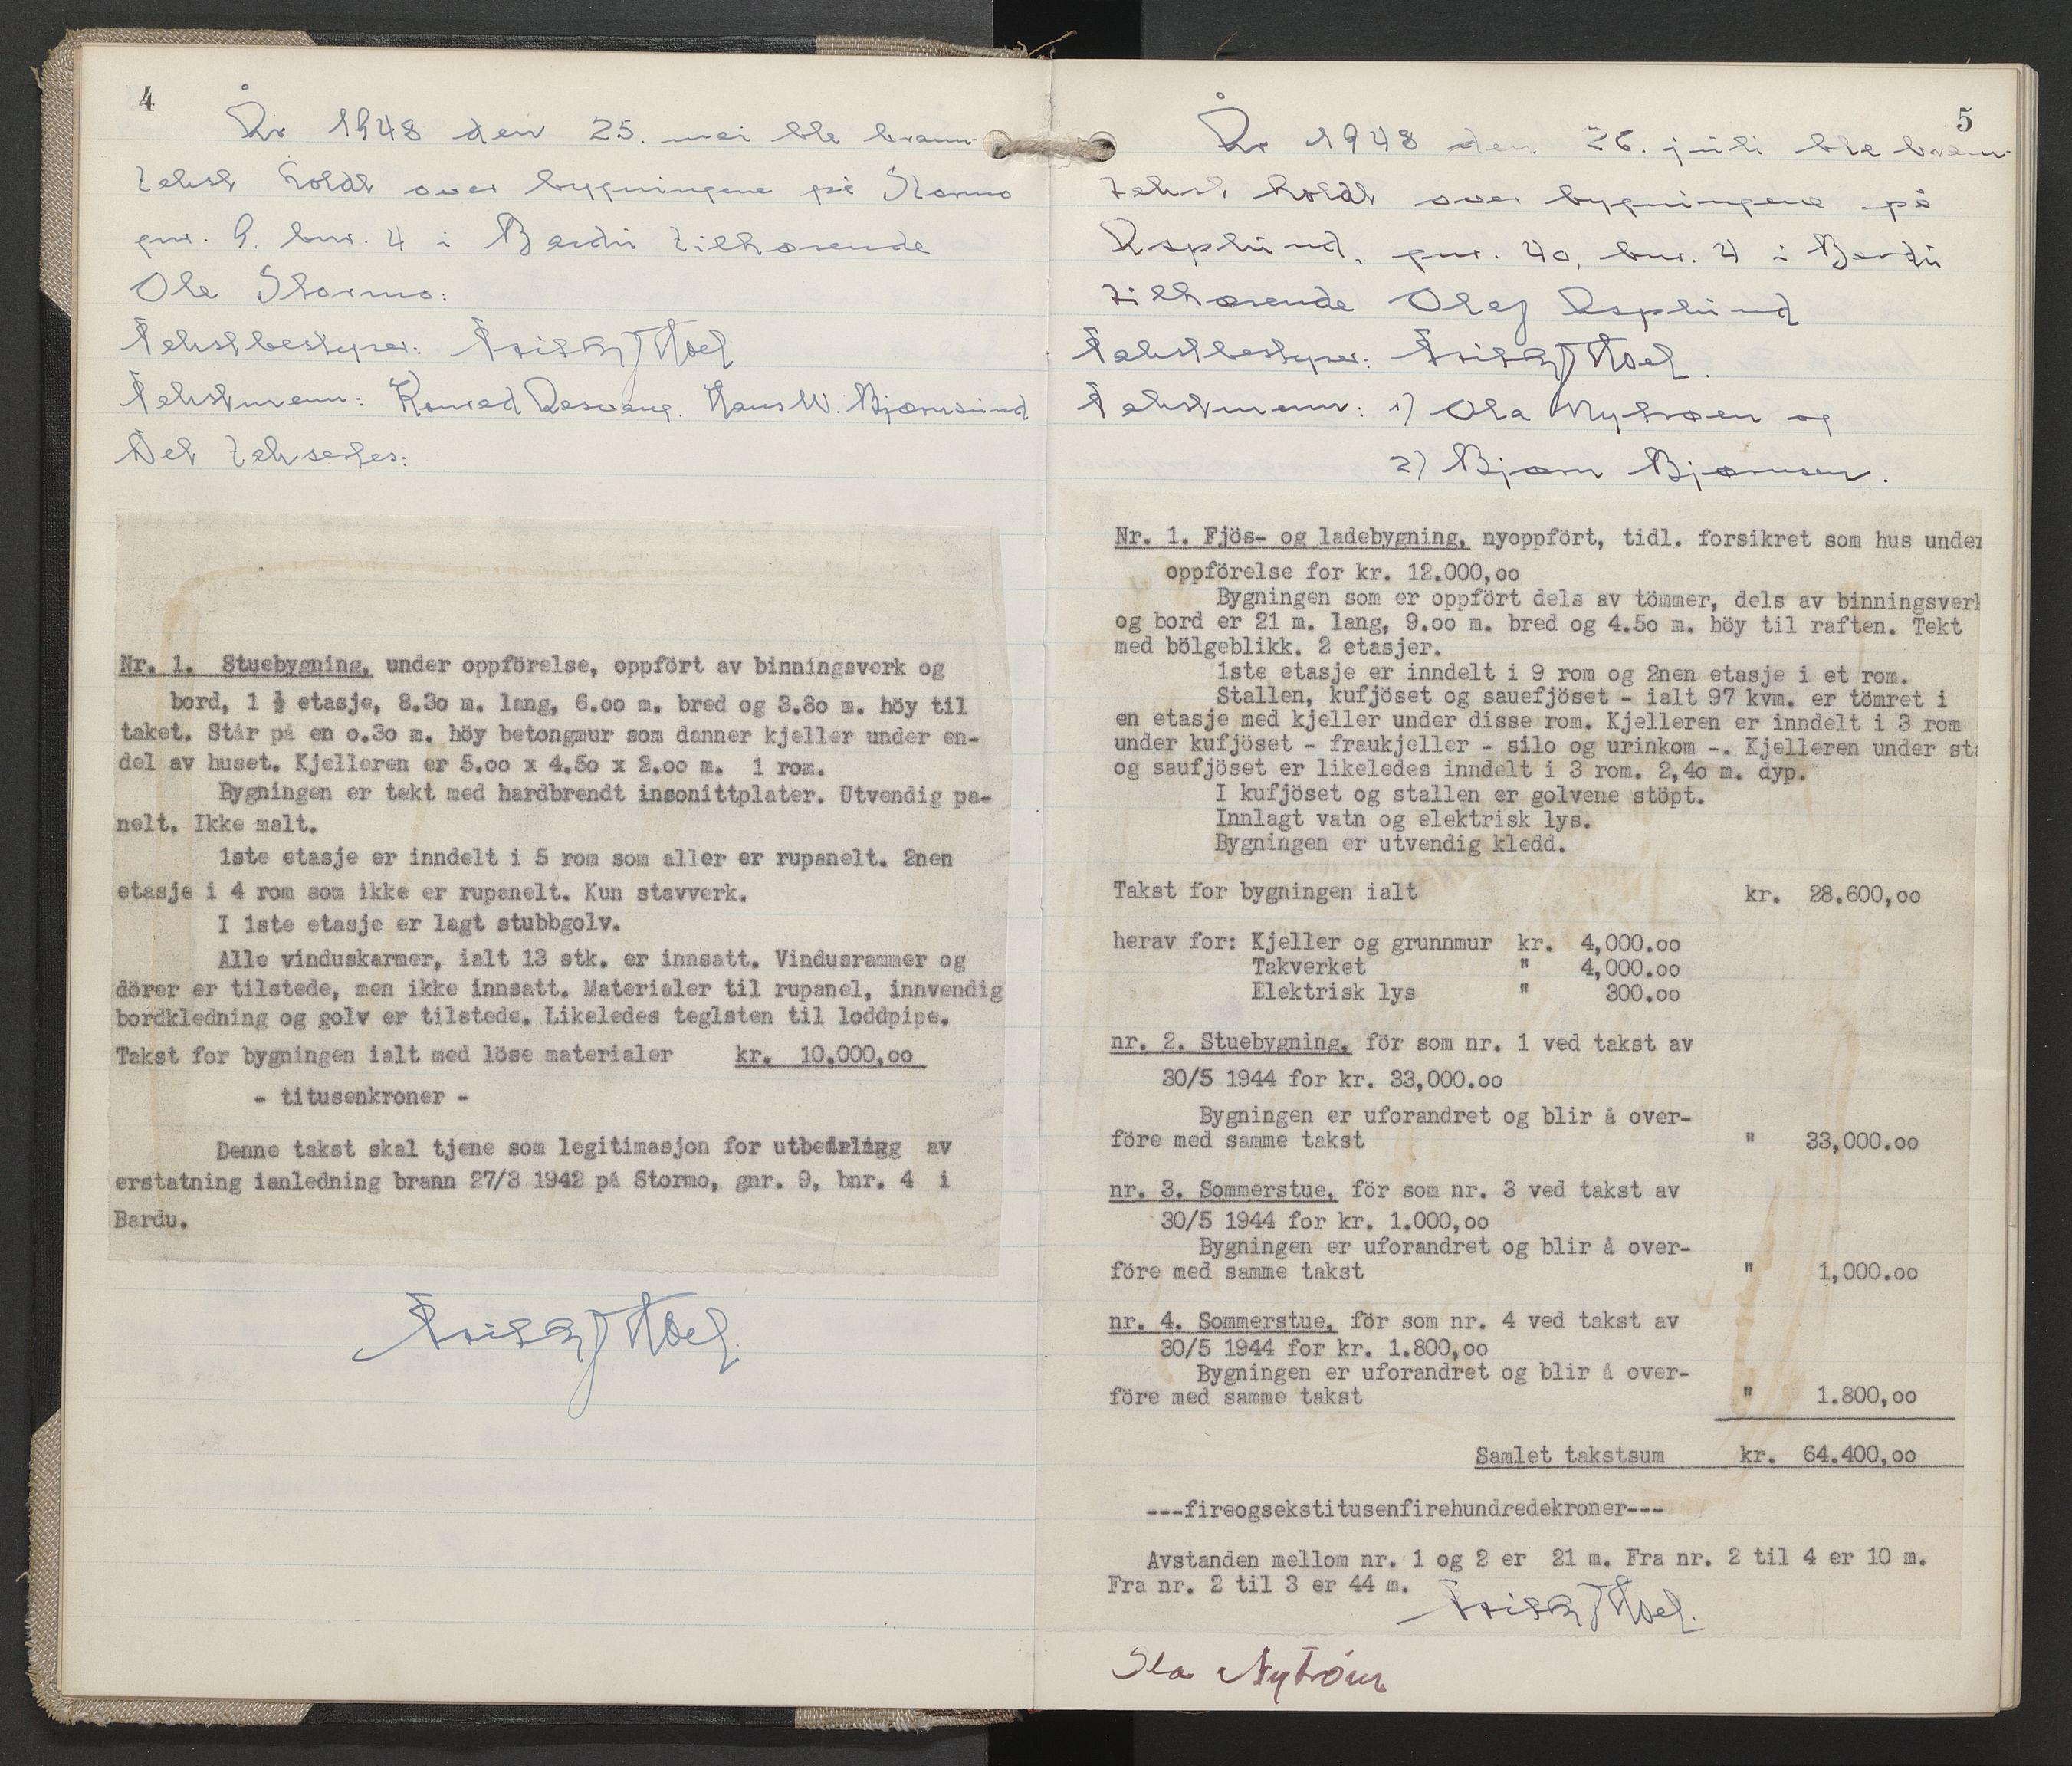 4
År 1948 den 25. mai ble brann-
takst holdt over bygningene på Stormo
gnr. 9. bnr. 4 i Bardu tilhørende
Ole Stormo:
Takstbestyrer:
Takstmenn: Konrad Hans W. Bjørnsund
Det takseres:
Nr. 1. Stuebygning, under oppförelse, oppfört av binningsverk og
bord, 1 ½ etasje, 8.30 m. lang, 6.00 m. bred og 3.80 m. höy til
taket. Står på en 0.30 m. höy betongmur som danner kjeller under en-
del av huset. Kjelleren er 5.00 x 4.50 x 2.00 m. 1 rom.
Bygningen er tekt med hardbrendt insonittplater. Utvendig pa-
nelt. Ikke malt.
1ste etasje er inndelt i 5 rom som aller er rupanelt. 2nen
etasje i 4 rom som ikke er rupanelt. Kun stavverk.
I 1ste etasje er lagt stubbgolv.
Alle vinduskarmer, ialt 13 stk. er innsatt. Vindusrammer og
dörer er tilstede, men ikke innsatt. Materialer til rupanel, innvendig
bordkledning og golv er tilstede. Likeledes teglsten til loddpipe.
Takst for bygningen ialt med löse materialer kr. 10.000,00
- titusenkroner -
Denne takst skal tjene som legitimasjon for av
erstatning ianledning brann 27/3 1942 på Stormo, gnr. 9, bnr. 4 i
Bardu.
5
År 1948 den 26. juli ble brann-
takst holdt over bygningene på
Asplund, gnr. 40, bnr. 4 i Bardu
tilhørende Olaf Asplund
Takstbestyrer:
Takstmenn: 1) Ola Nytrøen og
2) Bjørn Bjørnsen.
Nr. 1. Fjös- og ladebygning, nyoppfört, tidl. forsikret som hus under
oppförelse for kr. 12.000,00
Bygningen som er oppfört dels av tömmer, dels av binningsverk
og bord er 21 m. lang, 9.00 m. bred og 4.50 m. höy til raften. Tekt
med bölgeblikk. 2 etasjer.
1ste etasje er inndelt i 9 rom og 2nen etasje i et rom.
Stallen, kufjöset og sauefjöset - ialt 97 kvm. er tömret i
en etasje med kjeller under disse rom. Kjelleren er inndelt i 3 rom
under kufjöset - fraukjeller - silo og urinkom -. Kjelleren under sta
og saufjöset er likeledes inndelt i 3 rom. 2,40 m. dyp.
I kufjöset og stallen er golvene stöpt.
Innlagt vatn og elektrisk lys.
Bygningen er utvendig kledd.
Takst for bygningen ialt kr. 28.600,00
herav for: Kjeller og grunnmur kr. 4,000.00
Takverket " 4,000.00
Elektrisk lys " 300.00
nr. 2. Stuebygning, för som nr. 1 ved takst av
30/5 1944 for kr. 33,000.00
Bygningen er uforandret og blir å over-
före med samme takst " 33,000.00
nr. 3. Sommerstue, för som nr. 3 ved takst av
30/5 1944 for kr. 1.000,00
Bygningen er uforandret og blir å over-
före med samme takst " 1,000.00
nr. 4. Sommerstue, för som nr. 4 ved takst av
30/5 1944 for kr. 1.800,00
Bygningen er uforandret og blir å over-
före med samme takst " 1.800,00
Samlet takstsum kr. 64.400,00
---fireogsekstitusenfirehundredekroner---
Avstanden mellom nr. 1 og 2 er 21 m. Fra nr. 2 til 4 er 10 m.
Fra nr. 2 til 3 er 44 m.
Ola Nytrøen